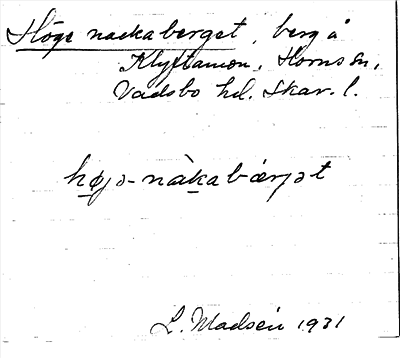 Höge nackaberget, berg å
Klyftamon, Horns sn,
Vadsbo hd. Skar. l.
højə-nàkabærjət
L. Madsén 1931